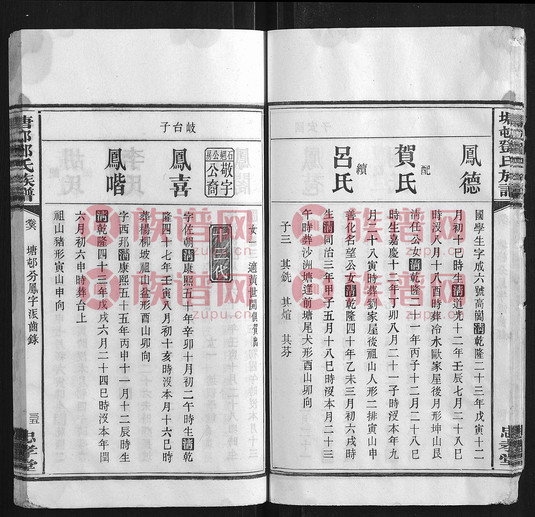 塘邨鄧氏族譜
忠孝堂
鳳德
國學生字成六號高崗清乾隆二十三年戊寅十二
月初十巳時生清道光十二年壬辰七月二十八巳
時沒八月十八酉時葬冷水歐家屋後月形坤山艮
配
賀氏
清任公女清乾隆二十一年丙子十二月二十八巳
時生嘉慶十二年丁卯八月二十一子時沒本年九
月二十八寅時葬劉家屋後祖山人形二排寅山申
續
呂氏
善化名望公女清乾隆四十年乙未三月初六戌時
生清同治三年甲子五月十八巳時沒本月二十三
午時葬沙洲塘逕前塘尾犬形酉山卯向
子三 其銑 其煊 其芬
女一 適黃
十三代
石緦公房
敬字公裔
岐台子
鳳喜
字佐朝清康熙五十年辛卯十月初二午時生清乾
隆四十七年壬寅八月初十亥時沒本月十六巳時
葬楊桐坡祖山盆形酉山卯向
鳳喈
字西郊清康熙五十五年丙申十一月十二辰時生
清乾隆四十三年戊戌六月二十四巳時沒本年閏
六月初六申時葬台上
祖山豬形寅山申向
塘邨鄧氏族譜
癸 塘邨芬鳳字派齒錄
三五
忠孝堂
族谱网
zupu.cn